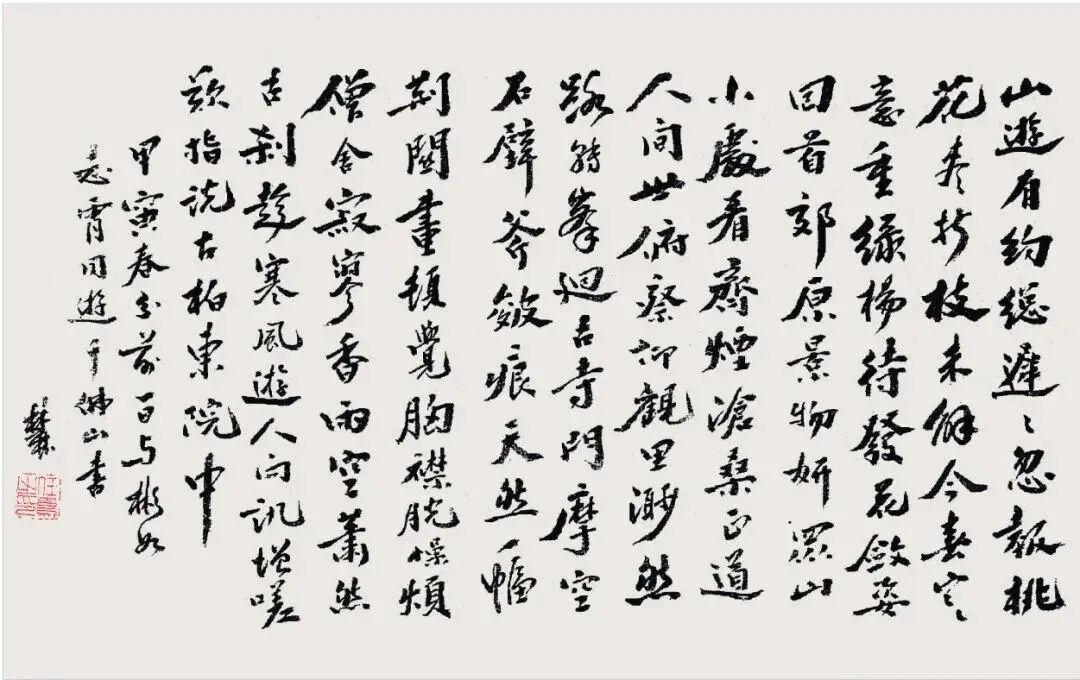 山遊有約總遲〻忽報桃
花折枝未解今春寒
意重綠楊待發花斂姿
回首郊原景物妍眾山
小處看齊煙滄桑正道
人間世俯察仰觀思渺然
路轉峯迴古寺門摩空
石壁斧皴痕天然一幅
荊關畫頓覺胸襟脫燥煩
僧舍寂寥香雨空蕭然
古刹趁寒風遊人問訊增嗟
歎指說古柏東院中
甲寅春分前一日與彬如
志霄同遊千佛山書